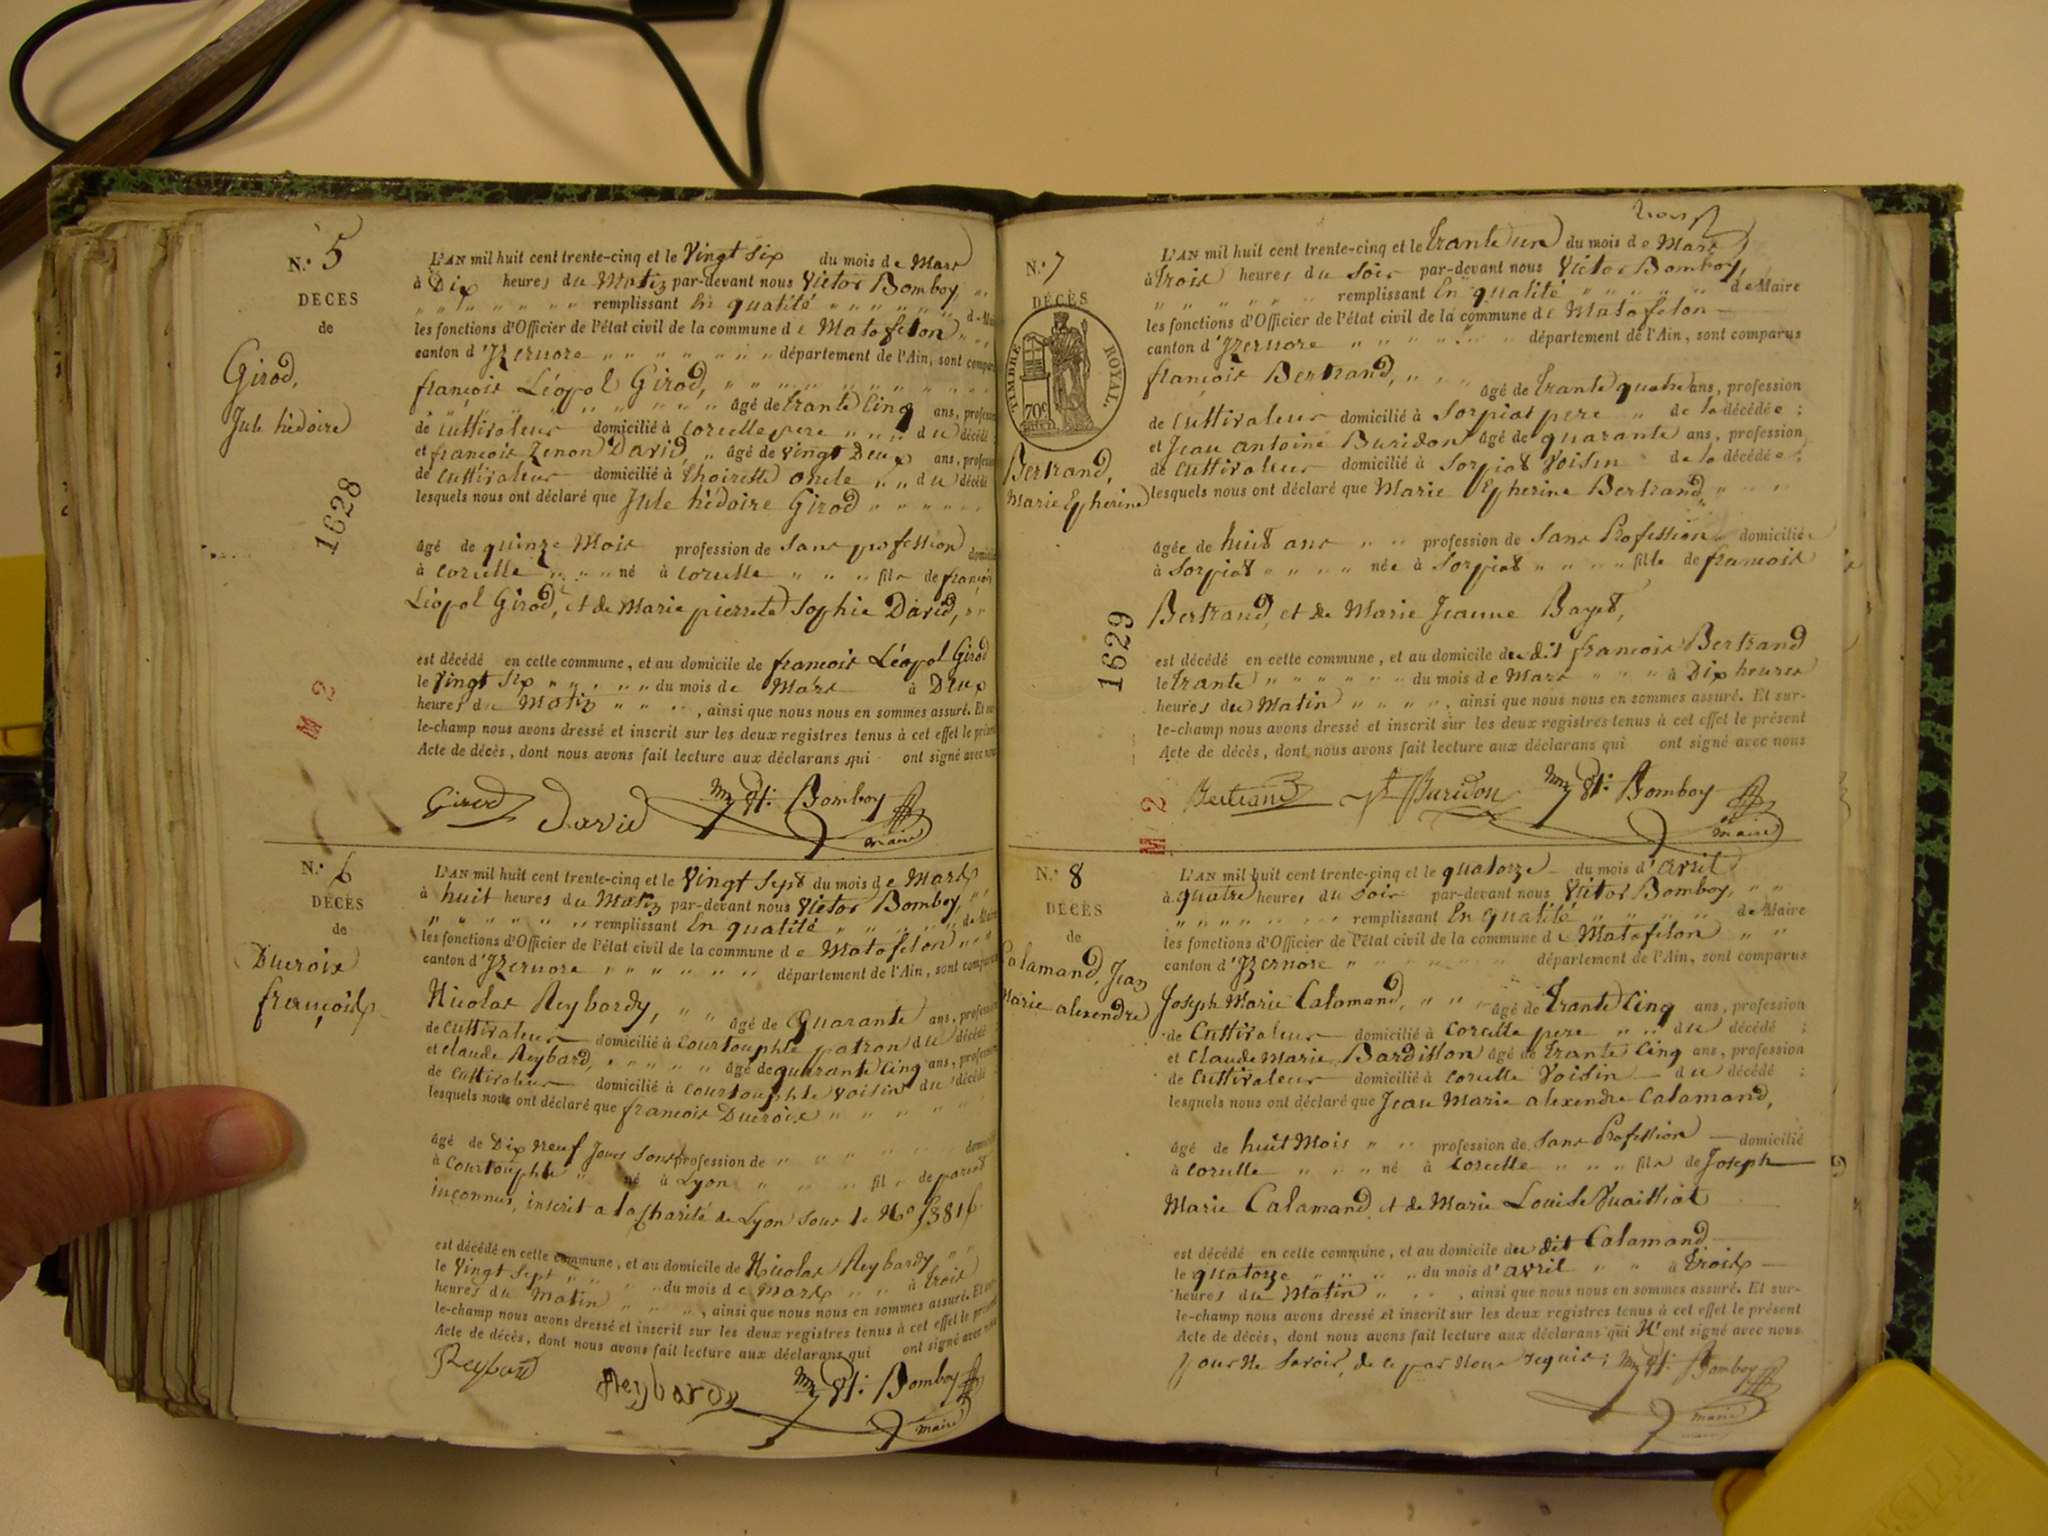 N.° 5
DECES
de
Girod,
Jule hédoire
1628
M 2
L'AN mil huit cent trente-cinq et le Vingt six du mois de Mars
à Dix heures du Matin par-devant nous Victor Bomboy, " "
" " " " " " " remplissant En qualité " " " " " " de Maire
les fonctions d'Officier de l'état civil de la commune de Matafelon " "
canton d'Yzernore " " " " " " " département de l'Ain, sont compar
françois Léopol Girod, " " " " " " " " " "
" " " " " " " âgé de trante Cinq ans, profession
de Cultivateur domicilié à Corcelle pere " " " du décédé ;
et françois Zenon David, " âgé de vingt Deux ans, profession
de Cultivateur domicilié à thoirette oncle " " du décédé
lesquels nous ont déclaré que Jule hédoire Girod " " " " " "
âgé de quinze Mois profession de Sans profession domicilié
à Corcelle " " " né à Corcelle " " " fils de françois
Léopol Girod, et de Marie pierrete Sophie David, " "
est décédé en cette commune, et au domicile de françois Léopol Girod
le Vingt Six " " " " " du mois de Mars à Deux
heures du Matin " " " , ainsi que nous nous en sommes assuré. Et sur-
le-champ nous avons dressé et inscrit sur les deux registres tenus à cet effet le présent
Acte de décès, dont nous avons fait lecture aux déclarans qui ont signé avec nous
Girod David Bomboy
maire
N.° 6
DÉCÈS
de
Ducroix
françois
L'AN mil huit cent trente-cinq et le Vingt Sept du mois de Mars
à huit heures du Matin par-devant nous Victor Bomboy " "
" " " " " " " remplissant En qualité " " " " " de Maire
les fonctions d'Officier de l'état civil de la commune de Matafelon " " "
canton d'Yzernore " " " " " " département de l'Ain, sont comparus
Nicolas Reybardy, " " âgé de Quarante ans, profession
de Cultivateur domicilié à Courtouphle patron du décédé ;
et Claude Reybard, " " " " " âgé de quarante Cinq ans, profession
de Cultivateur domicilié à Courtouphle voisin du décédé
lesquels nous ont déclaré que françois Ducroix " " " " " "
âgé de Dix Neuf Jours Sans profession de " " " " " domicilié
à Courtouphle " né à Lyon " " " " fils de parent
inconnus, inscrit a la Charité de Lyon sous le N°
est décédé en cette commune, et au domicile de Nicolas Reybardy " "
le Vingt Sept " " " " du mois de Mars " " à trois
heures du Matin " " " " , ainsi que nous nous en sommes assuré. Et sur-
le-champ nous avons dressé et inscrit sur les deux registres tenus à cet effet le présent
Acte de décès, dont nous avons fait lecture aux déclarans qui ont signé avec nous
Reybard Reybardy Bomboy
maire
N.° 7
DÉCÈS
TIMBRE ROYAL.
70c
Bertrand,
Marie Epherine
1629
M 2
trois
L'AN mil huit cent trente-cinq et le trante un du mois de Mars
à trois heures du soir par-devant nous Victor Bomboy,
" " " " " " " remplissant En qualité " " " " " de Maire
les fonctions d'Officier de l'état civil de la commune de Matafelon
canton d'Yzernore " " " " " " " département de l'Ain, sont comparus
françois Bertrand, " " " âgé de trante quatre ans, profession
de Cultivateur domicilié à Sorpiat pere " de la décédée ;
et Jean antoine Buridon âgé de quarante ans, profession
de Cultivateur domicilié à Sorpiat Voisin de la décédée ;
lesquels nous ont déclaré que Marie Epherine Bertrand, " " "
âgée de huit ans " " profession de Sans Profession domiciliée
à Sorpiat " " " " née à Sorpiat " " " " fille de françois
Bertrand, et de Marie Jeanne Bayet,
est décédé en cette commune, et au domicile du dit françois Bertrand
le trante " " " " " " du mois de Mars " " " à Dix heures
heures du Matin " " " " , ainsi que nous nous en sommes assuré. Et sur-
le-champ nous avons dressé et inscrit sur les deux registres tenus à cet effet le présent
Acte de décès, dont nous avons fait lecture aux déclarans qui ont signé avec nous
Bertrand Buridon Bomboy
maire
N.° 8
DÉCÈS
de
Calamand, Jean
Marie alexendre
L'AN mil huit cent trente-cinq et le quatorze du mois d'avril
à quatre heures du soir par-devant nous Victor Bomboy, " "
" " " " " " " remplissant En qualité " " " " de Maire
les fonctions d'Officier de l'état civil de la commune de Matafelon " "
canton d'Yzernore " " " " " " " département de l'Ain, sont comparus
Joseph Marie Calamand, " " " âgé de trante Cinq ans, profession
de Cultivateur domicilié à Corcelle pere " " du décédé ;
et Claude Marie Bardillon âgé de trante Cinq ans, profession
de Cultivateur domicilié à Corcelle Voisin du décédé ;
lesquels nous ont déclaré que Jean Marie alexendre Calamand,
âgé de huit Mois " " profession de Sans Profession domicilié
à Corcelle " " " né à Corcelle " " " fils de Joseph
Marie Calamand et de Marie Louise
est décédé en cette commune, et au domicile du dit Calamand
le quatorze " " " " du mois d'avril " " à trois
heures du Matin " " " , ainsi que nous nous en sommes assuré. Et sur-
le-champ nous avons dressé et inscrit sur les deux registres tenus à cet effet le présent
Acte de décès, dont nous avons fait lecture aux déclarans qui N' ont signé avec nous
pour Ne Savoir, de ce par Nous requis ; Bomboy
maire